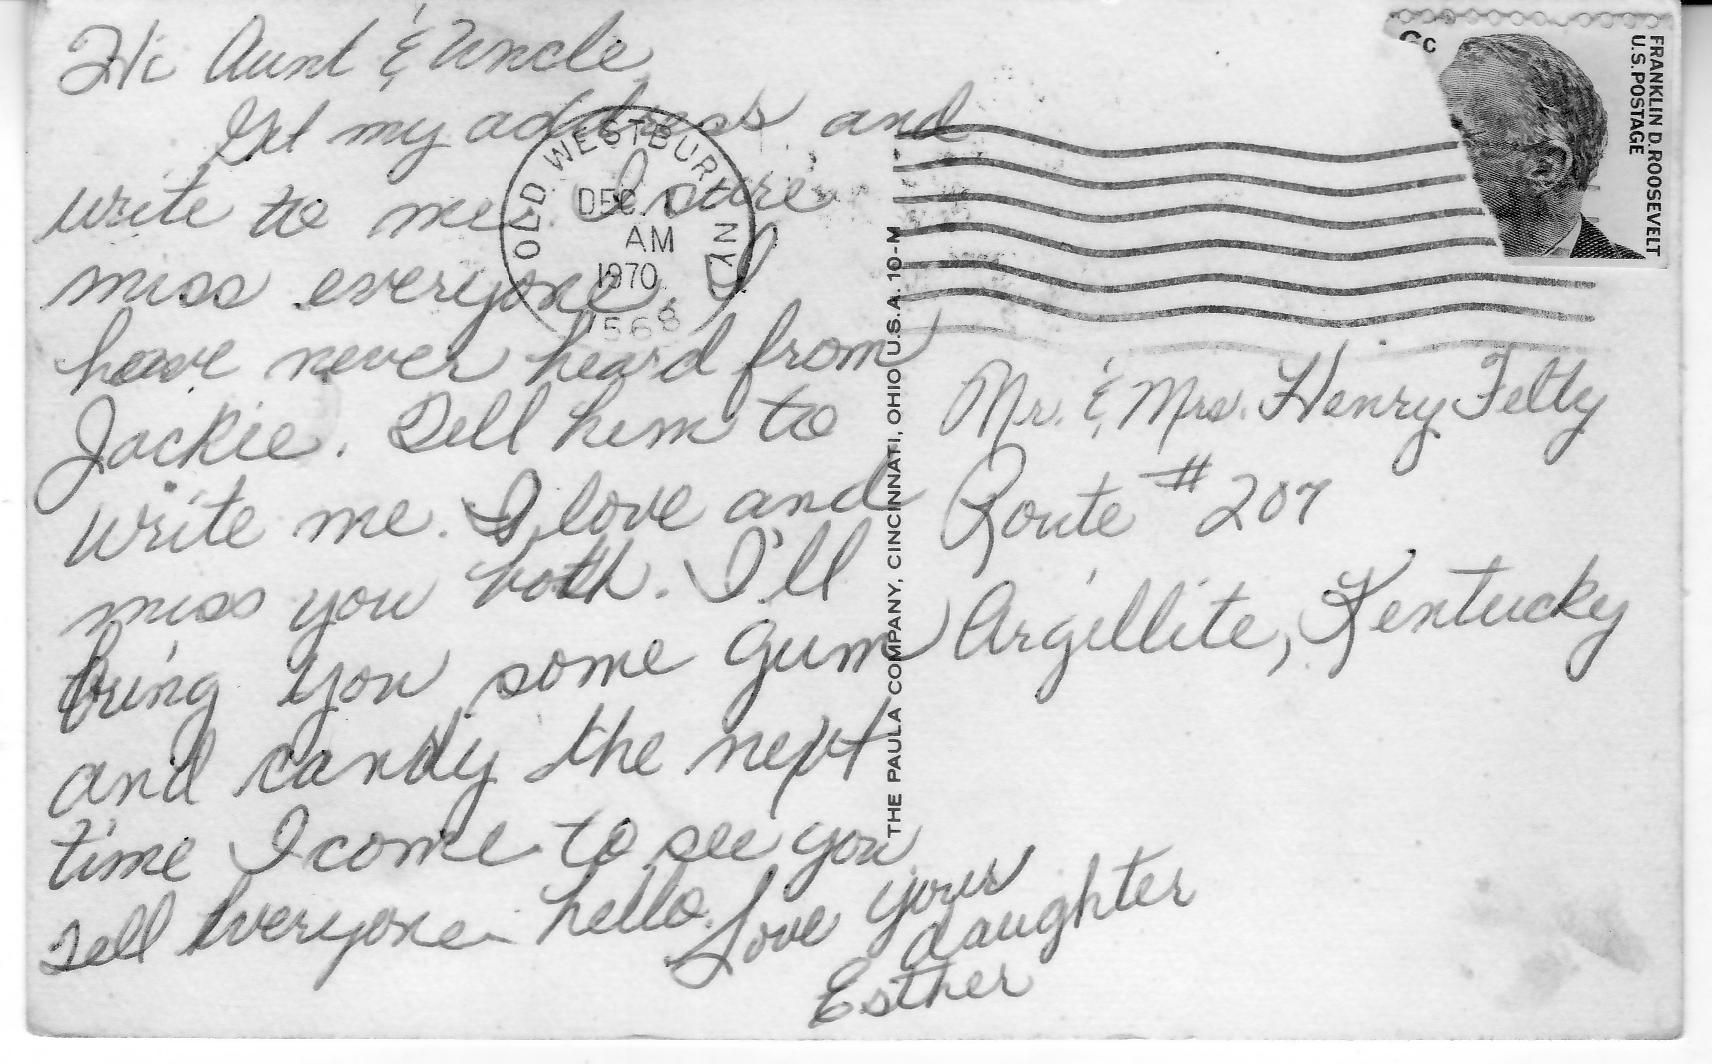 Hi Aunt & Uncle
Get my address and
write to me. I sure
miss everyone. I
have never heard from
Jackie. Tell him to
write me. I love and
miss you both. I'll
bring you some gum
and candy the next
time I come to see you
Tell everyone hello.
Love your
daughter
Esther
OLD WESTBURY NY
DEC
AM
1970
1568
THE PAULA COMPANY, CINCINNATI, OHIO U.S.A. 10-M
6c
FRANKLIN D. ROOSEVELT
U.S. POSTAGE
Mr. & Mrs. Henry Felty
Route # 207
Argillite, Kentucky